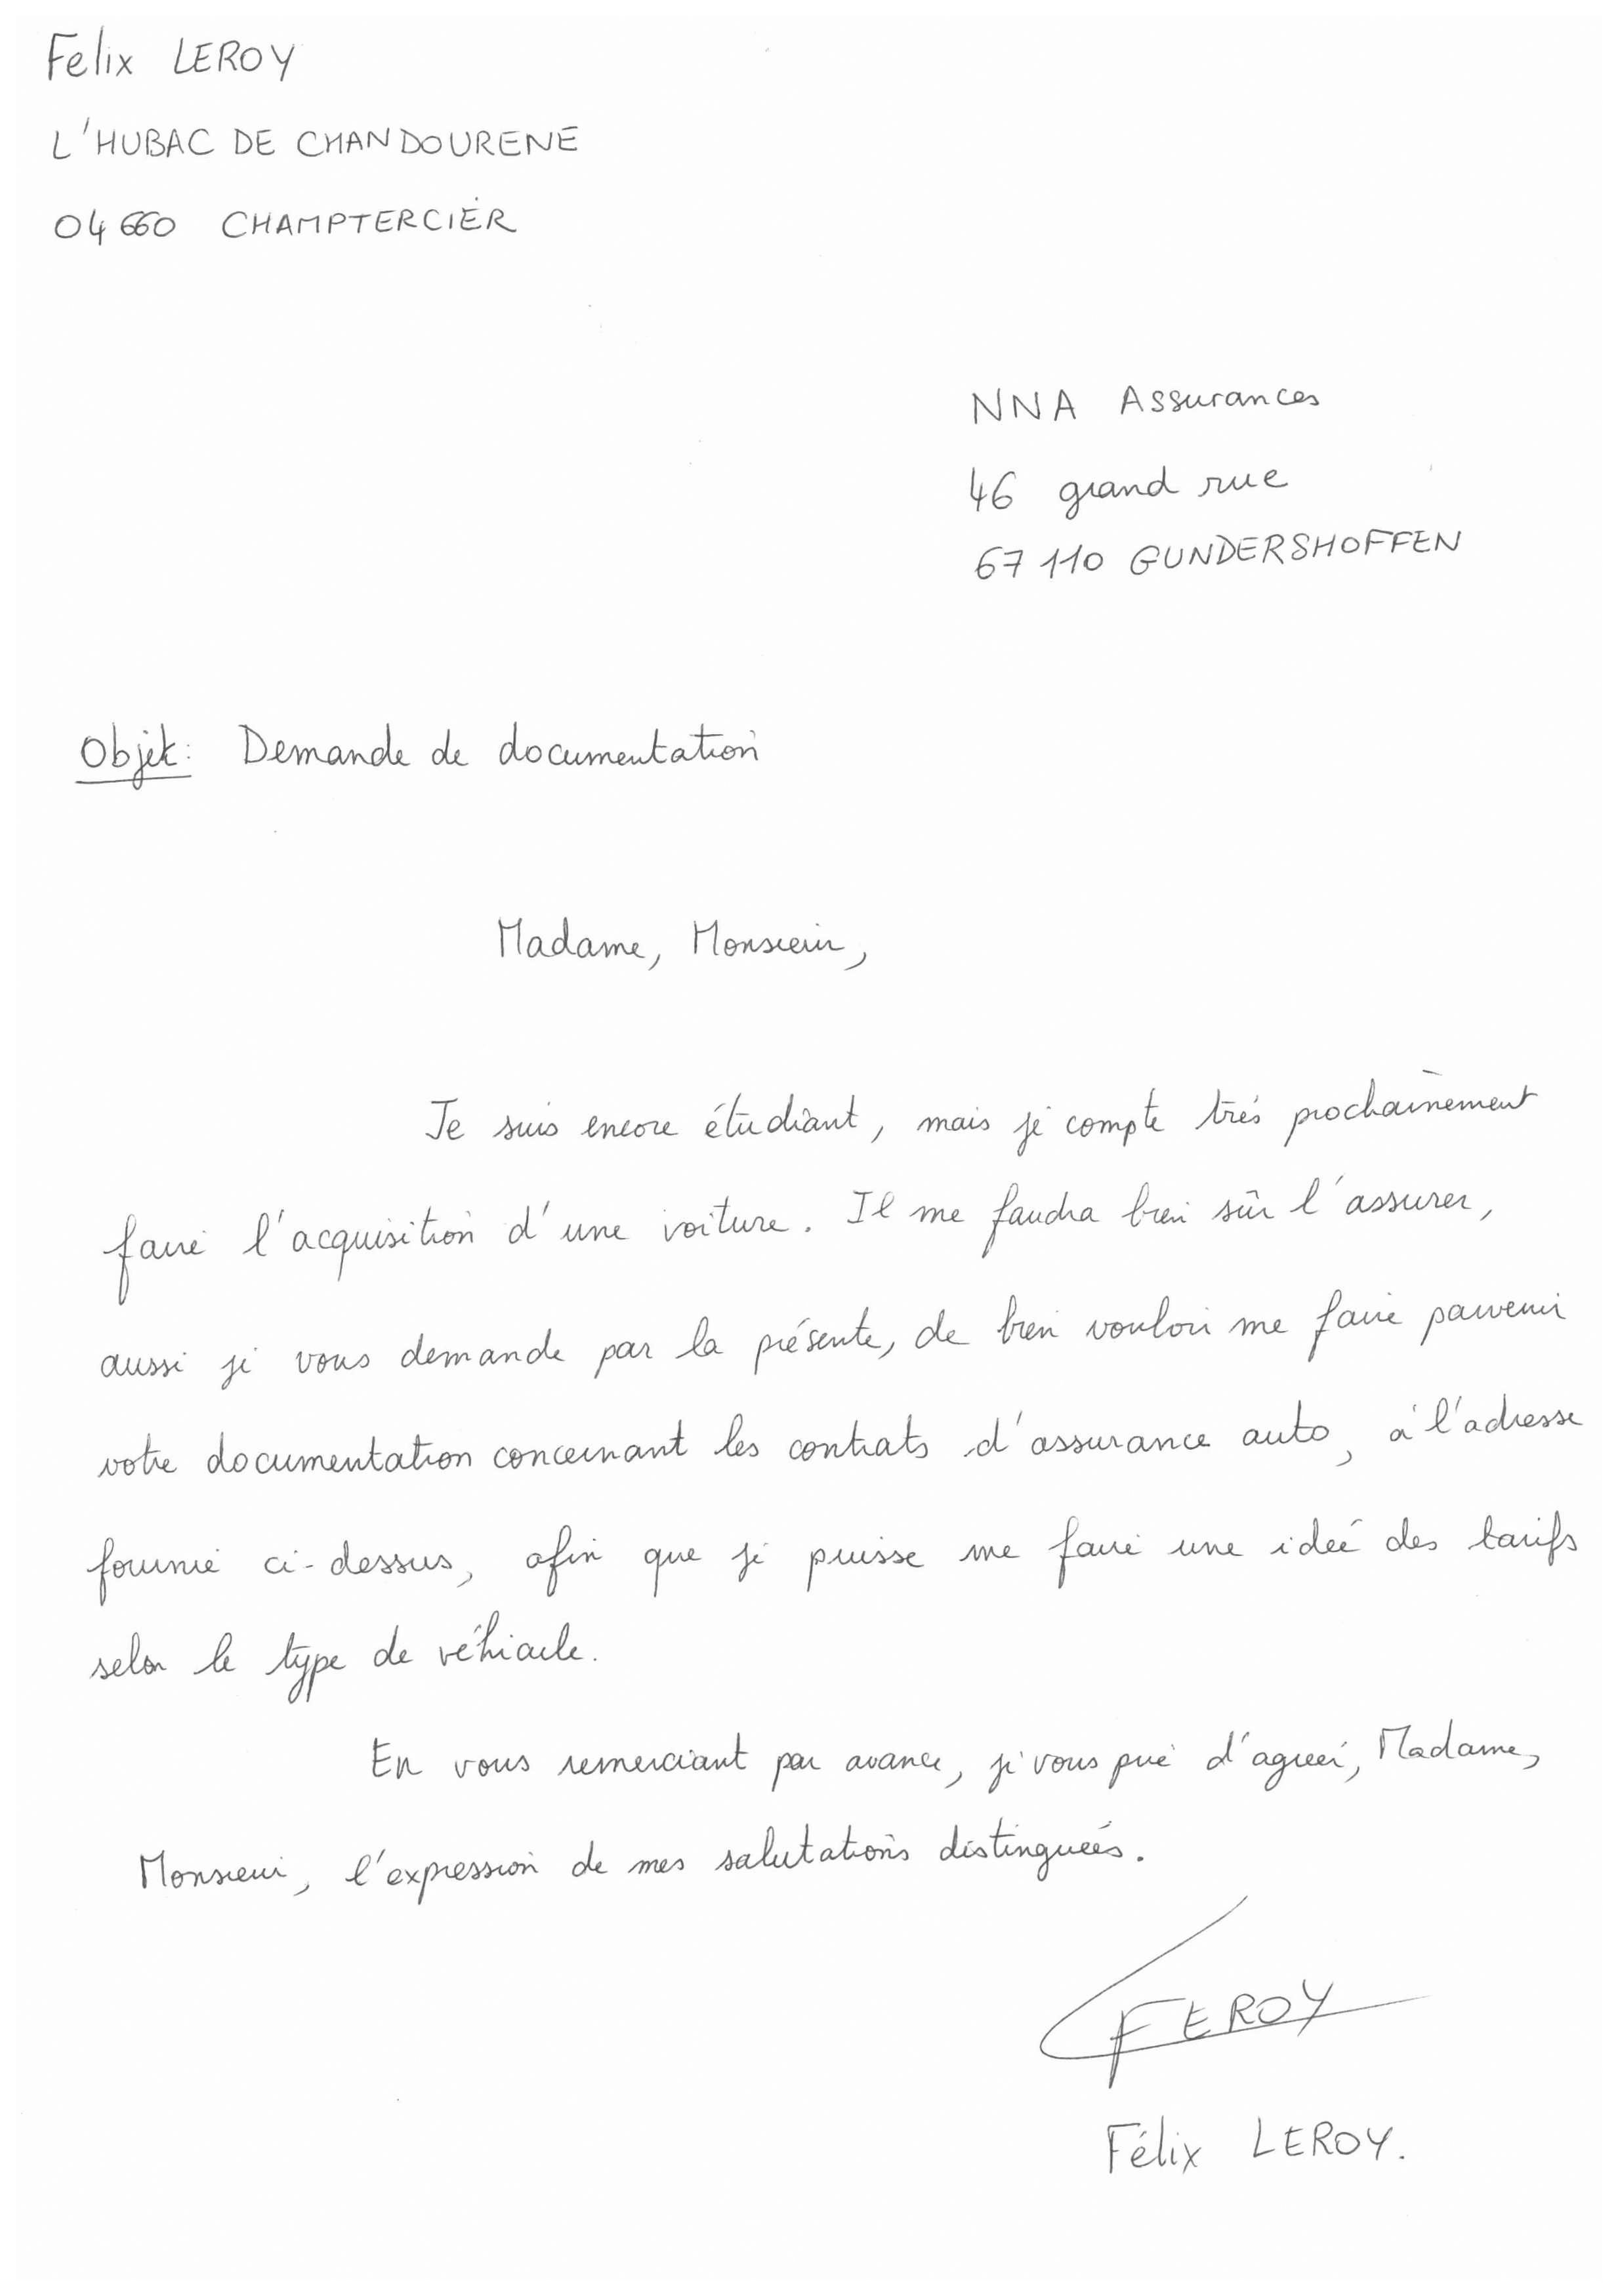 Felix LEROY
L'HUBAC DE CHANDOURENE
04660 CHAMPTERCIER
NNA Assurances
46 grand rue
67110 GUNDERSHOFFEN
Objet: Demande de documentation
Madame, Monsieur,
Je suis encore étudiant, mais je compte très prochainement
faire l'acquisition d'une voiture. Il me faudra bien sûr l'assurer,
aussi je vous demande par la présente, de bien vouloir me faire parvenir
votre documentation concernant les contrats d'assurance auto, à l'adresse
fournie ci-dessus, afin que je puisse me faire une idée des tarifs
selon le type de véhicule.
En vous remerciant par avance, je vous prie d'agréer, Madame,
Monsieur, l'expression de mes salutations distinguées.
FEROY
Félix LEROY.